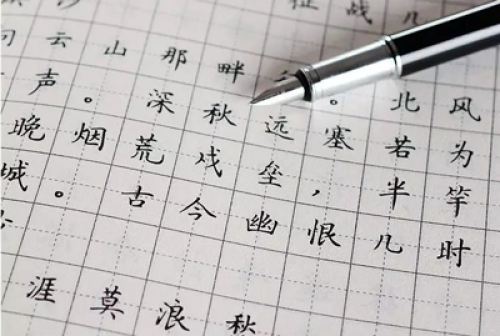 征战几
向云山那畔。北风
声。深秋远塞若为
晚烟荒戍垒，半竿
城。古今幽恨几时
涯莫浪秋